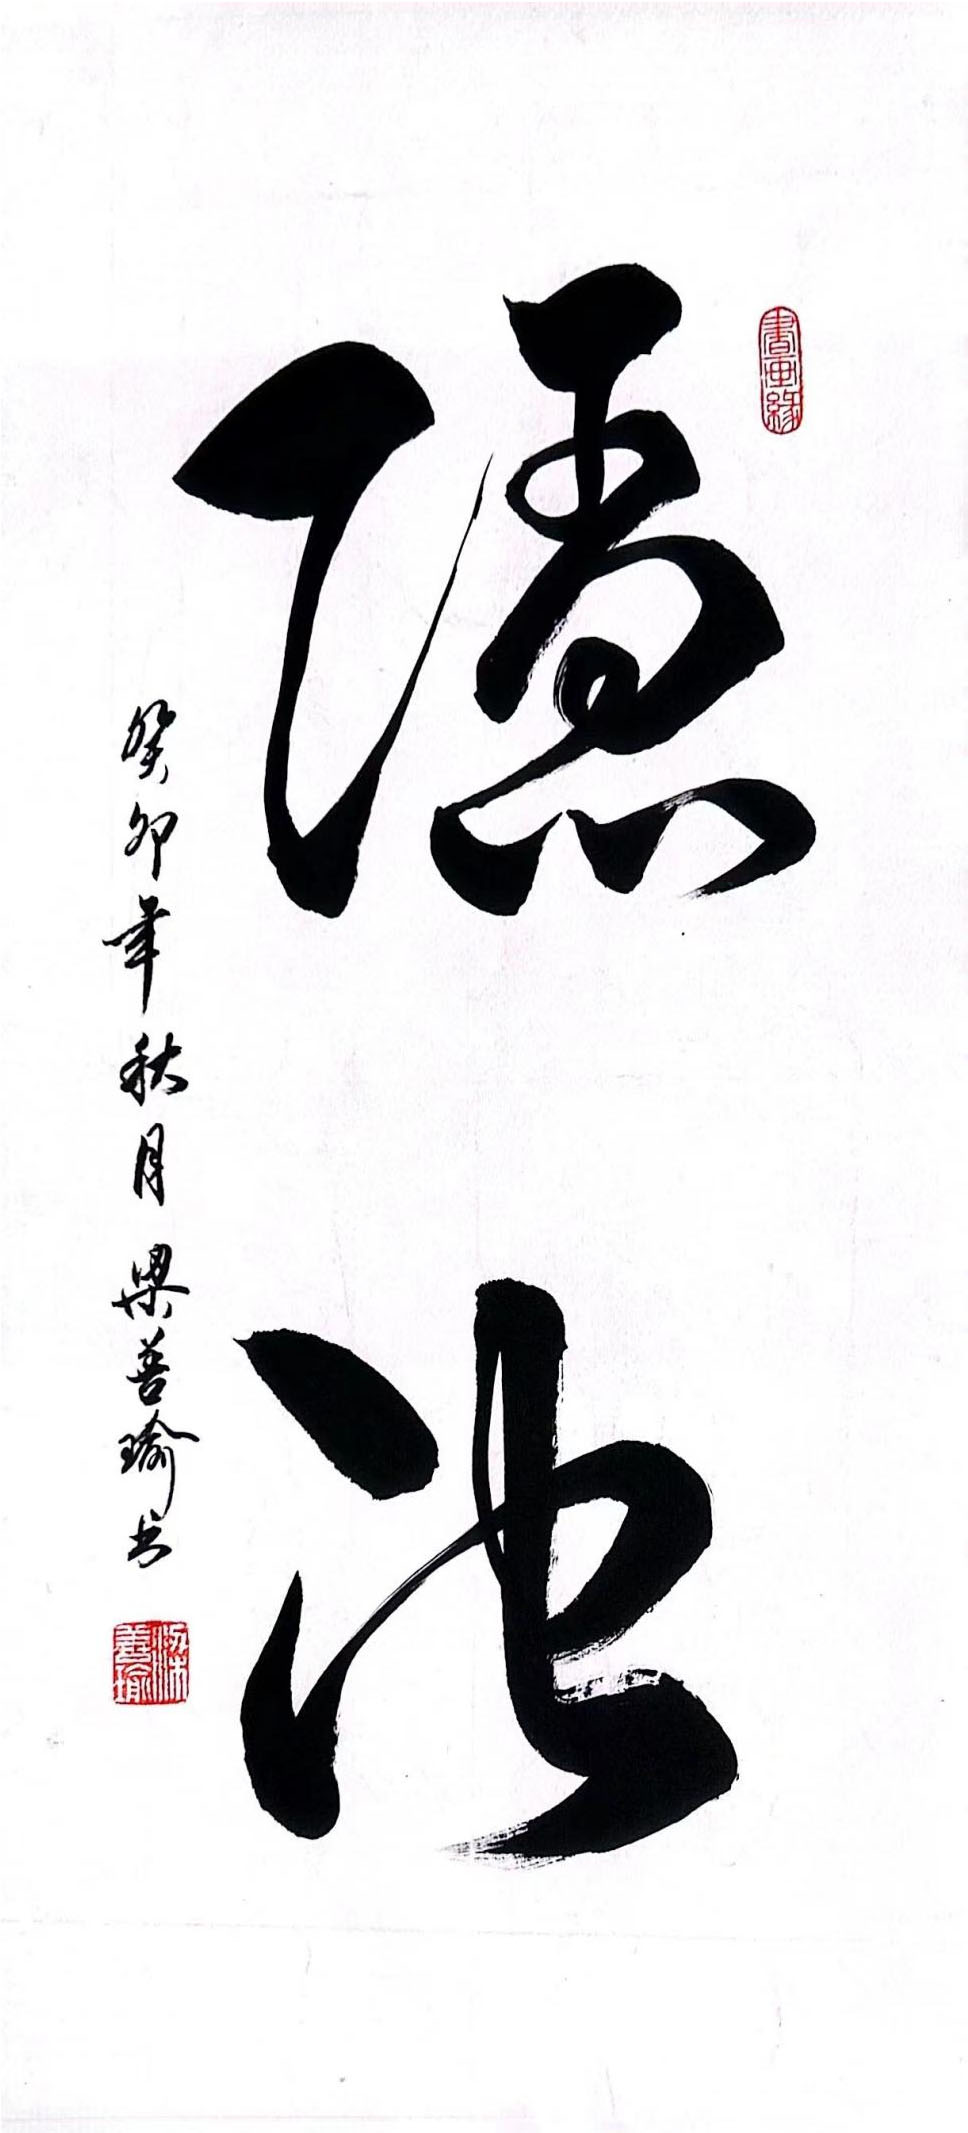 書画緣
隱池
癸卯年秋月 梁善瑜书
梁善瑜